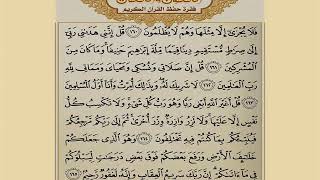 فقرة حفظ القرآن الكريم
فَلَا يُجْزَىٰٓ إِلَّا مِثْلَهَا وَهُمْ لَا يُظْلَمُونَ ١٦٠ قُلْ إِنَّنِى هَدَىٰنِى رَبِّىٓ
إِلَىٰ صِرَٰطٍ مُّسْتَقِيمٍ دِينًا قِيَمًا مِّلَّةَ إِبْرَٰهِيمَ حَنِيفًا وَمَا كَانَ مِنَ
ٱلْمُشْرِكِينَ ١٦١ قُلْ إِنَّ صَلَاتِى وَنُسُكِى وَمَحْيَاىَ وَمَمَاتِى لِلَّهِ
رَبِّ ٱلْعَٰلَمِينَ ١٦٢ لَا شَرِيكَ لَهُۥ وَبِذَٰلِكَ أُمِرْتُ وَأَنَا۠ أَوَّلُ ٱلْمُسْلِمِينَ
١٦٣ قُلْ أَغَيْرَ ٱللَّهِ أَبْغِى رَبًّا وَهُوَ رَبُّ كُلِّ شَىْءٍ وَلَا تَكْسِبُ كُلُّ
نَفْسٍ إِلَّا عَلَيْهَا وَلَا تَزِرُ وَازِرَةٌ وِزْرَ أُخْرَىٰ ثُمَّ إِلَىٰ رَبِّكُم مَّرْجِعُكُمْ
فَيُنَبِّئُكُم بِمَا كُنتُمْ فِيهِ تَخْتَلِفُونَ ١٦٤ وَهُوَ ٱلَّذِى جَعَلَكُمْ
خَلَٰٓئِفَ ٱلْأَرْضِ وَرَفَعَ بَعْضَكُمْ فَوْقَ بَعْضٍ دَرَجَٰتٍ لِّيَبْلُوَكُمْ
فِى مَآ ءَاتَىٰكُمْ إِنَّ رَبَّكَ سَرِيعُ ٱلْعِقَابِ وَإِنَّهُۥ لَغَفُورٌ رَّحِيمٌ ١٦٥